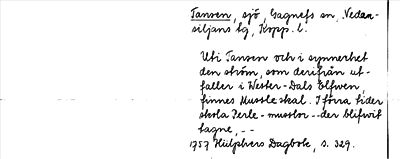 Tansen, sjö, Gagnefs sn, Nedan-
siljans tg, Kopp. l.
Uti Tansen och i synnerhet
den ström, som derifrån ut-
faller i Wester-Dals Elfwen,
finnes Mussleskal. I förra tider
skola Perle-musslor -- der blifwit
tagne, --
1757 Hülphers Dagbok, s. 329.